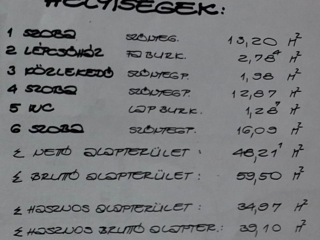 HELYISÉGEK:
1 SZOBA SZŐNYEG. 13,20 M²
2 LÉPCSŐHÁZ FA BURK. 2,78 M²
3 KÖZLEKEDŐ SZŐNYEGP. 1,98 M²
4 SZOBA SZŐNYEGP. 12,87 M²
5 WC LAP BURK. 1,28 M²
6 SZOBA SZŐNYEGP. 16,09 M²
Σ NETTÓ ALAPTERÜLET: 48,21 M²
Σ BRUTTÓ ALAPTERÜLET: 59,50 M²
Σ HASZNOS ALAPTERÜLET: 34,97 M²
Σ HASZNOS BRUTTÓ ALAPTER.: 39,10 M²